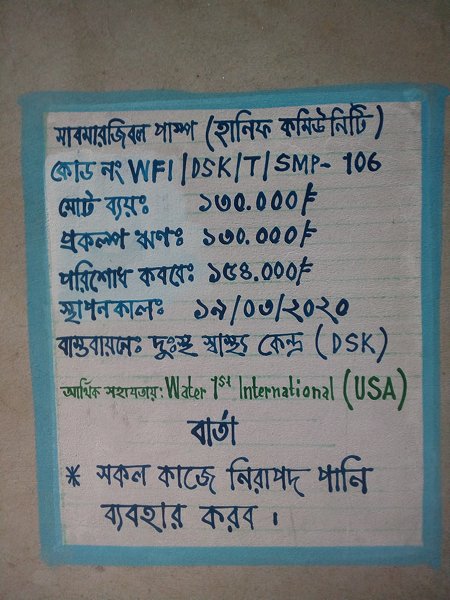 সাবমারজিবল পাম্প (হানিফ কমিউনিটি)
কোড নং WFI/DSK/T/SMP- 106
মোট ব্যয়ঃ ১৩০.০০০/=
প্রকল্প ঋণঃ ১৩০.০০০/=
পরিশোধ করবেঃ ১৫৪.০০০/=
স্থাপনকালঃ ১৯/০৩/২০২০
বাস্তবায়নেঃ দুঃস্থ স্বাস্থ্য কেন্দ্র (DSK)
আর্থিক সহায়তায়: Water 1st International (USA)
বার্তা
* সকল কাজে নিরাপদ পানি
ব্যবহার করব ।